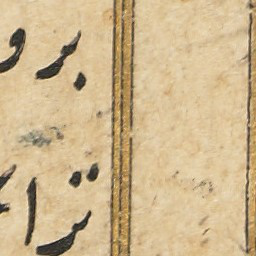 برو
ترا